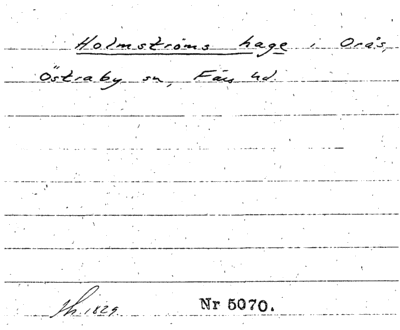 Holmströms hage i Orås,
Östraby sn, Färs hd.
Sk. 1829 Nr 5070.